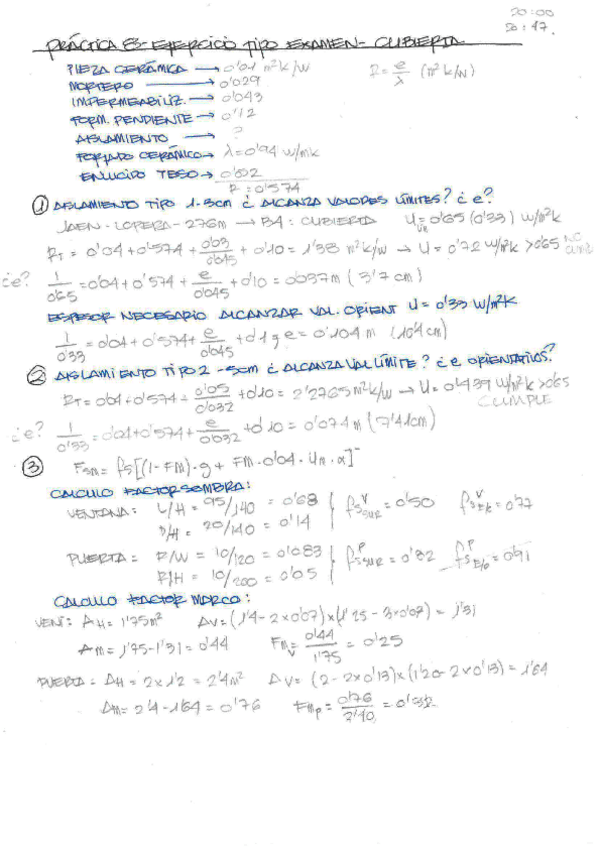 20:00
20:47
PRÁCTICA 8-EJERCICIO TIPO EXAMEN- CUBIERTA
PIEZA CERÁMICA → 0'01 m²k/W R = e/λ (m²k/W)
MORTERO → 0'029
IMPERMEABILIZ. → 0'043
FORM. PENDIENTE → 0'12
AISLAMIENTO → ?
FORJADO CERÁMICO → λ=0'94 W/mk
ENLUCIDO YESO → 0'032
R = 0'574
① AISLAMIENTO TIPO 1-3cm ¿ ALCANZA VALORES LÍMITES? ¿ e?
JAEN - LOPERA - 276m → B4: CUBIERTA U = 0'65 (0'33) W/m²k
RT = 0'04+0'574+ 0'03/0'045 + 0'10 = 1'38 m²k/W → U = 0'72 W/m²k > 0'65 NO CUMPLE
¿e? 1/0'65 = 0'04+0'574+ e/0'045 + 0'10 = 0'037m (3'7 cm)
ESPESOR NECESARIO ALCANZAR VAL. ORIENT U = 0'33 W/m²k
1/0'33 = 0'04+0'574+ e/0'045 + 0'1 y e = 0'104 m (10'4cm)
② AISLAMIENTO TIPO 2 - 5cm ¿ ALCANZA VAL LÍMITE? ¿ e ORIENTATIVOS?
RT = 0'04+0'574+ 0'05/0'032 + 0'10 = 2'2765 m²k/W → U = 0'439 W/m²k > 0'65
CUMPLE
¿e? 1/0'33 = 0'04+0'574+ e/0'032 + 0'10 = 0'074 m (7'41cm)
③ FSM = fs[(1-FM)·g + FM·0'04·Um·α]
CALCULO FACTOR SOMBRA:
VENTANA: L/H = 95/140 = 0'68 fsV SUR = 0'50 = 0'77
D/H = 20/140 = 0'14
PUERTA: R/W = 10/120 = 0'083 fsP SUR = 0'82 fsP E/O = 0'91
R/H = 10/200 = 0'05
CALCULO FACTOR MARCO:
VENT: AH = 1'75m² AV = (1'4-2x0'07)x(1'25-3x0'07) = 1'31
AM = 1'75-1'31 = 0'44 FMV 0'44/1'75 = 0'25
PUERTA: AH = 2x1'2 = 2'4m² AV = (2-2x0'13)x(1'20-2x0'13) = 1'64
AM = 2'4-1'64 = 0'76 FMP = 0'76/2'40 = 0'32